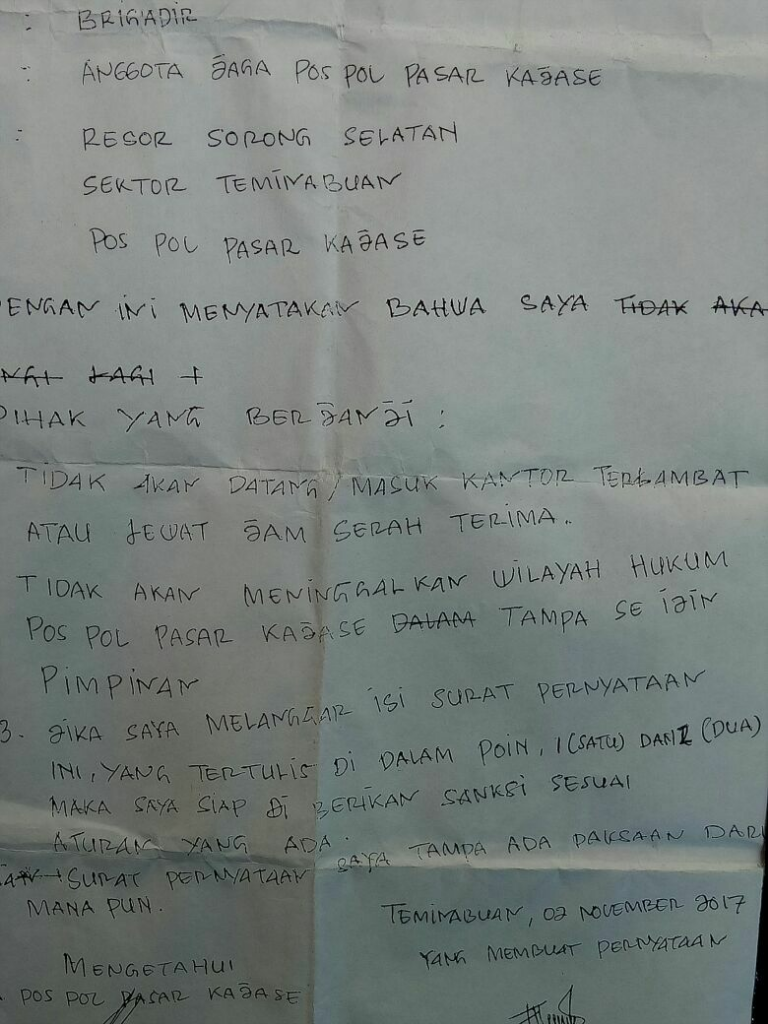 : BRIGADIR
: ANGGOTA JAGA POS POL PASAR KAJASE
: RESOR SORONG SELATAN
SEKTOR TEMINABUAN
POS POL PASAR KAJASE
DENGAN INI MENYATAKAN BAHWA SAYA TIDAK AKA
NGI LAGI +
PIHAK YANG BERJANJI :
TIDAK AKAN DATANG/MASUK KANTOR TERLAMBAT
ATAU LEWAT JAM SERAH TERIMA..
TIDAK AKAN MENINGGALKAN WILAYAH HUKUM
POS POL PASAR KAJASE DALAM TAMPA SE IJIN
PIMPINAN
3. JIKA SAYA MELANGGAR ISI SURAT PERNYATAAN
INI, YANG TERTULIS DI DALAM POIN, 1 (SATU) DAN 2 (DUA)
MAKA SAYA SIAP DI BERIKAN SANKSI SESUAI
ATURAN YANG ADA.
SURAT PERNYATAAN SAYA TAMPA ADA PAKSAAN DARI
MANA PUN.
TEMINABUAN, 02 NOVEMBER 2017
YANG MEMBUAT PERNYATAAN
MENGETAHUI
POS POL PASAR KAJASE